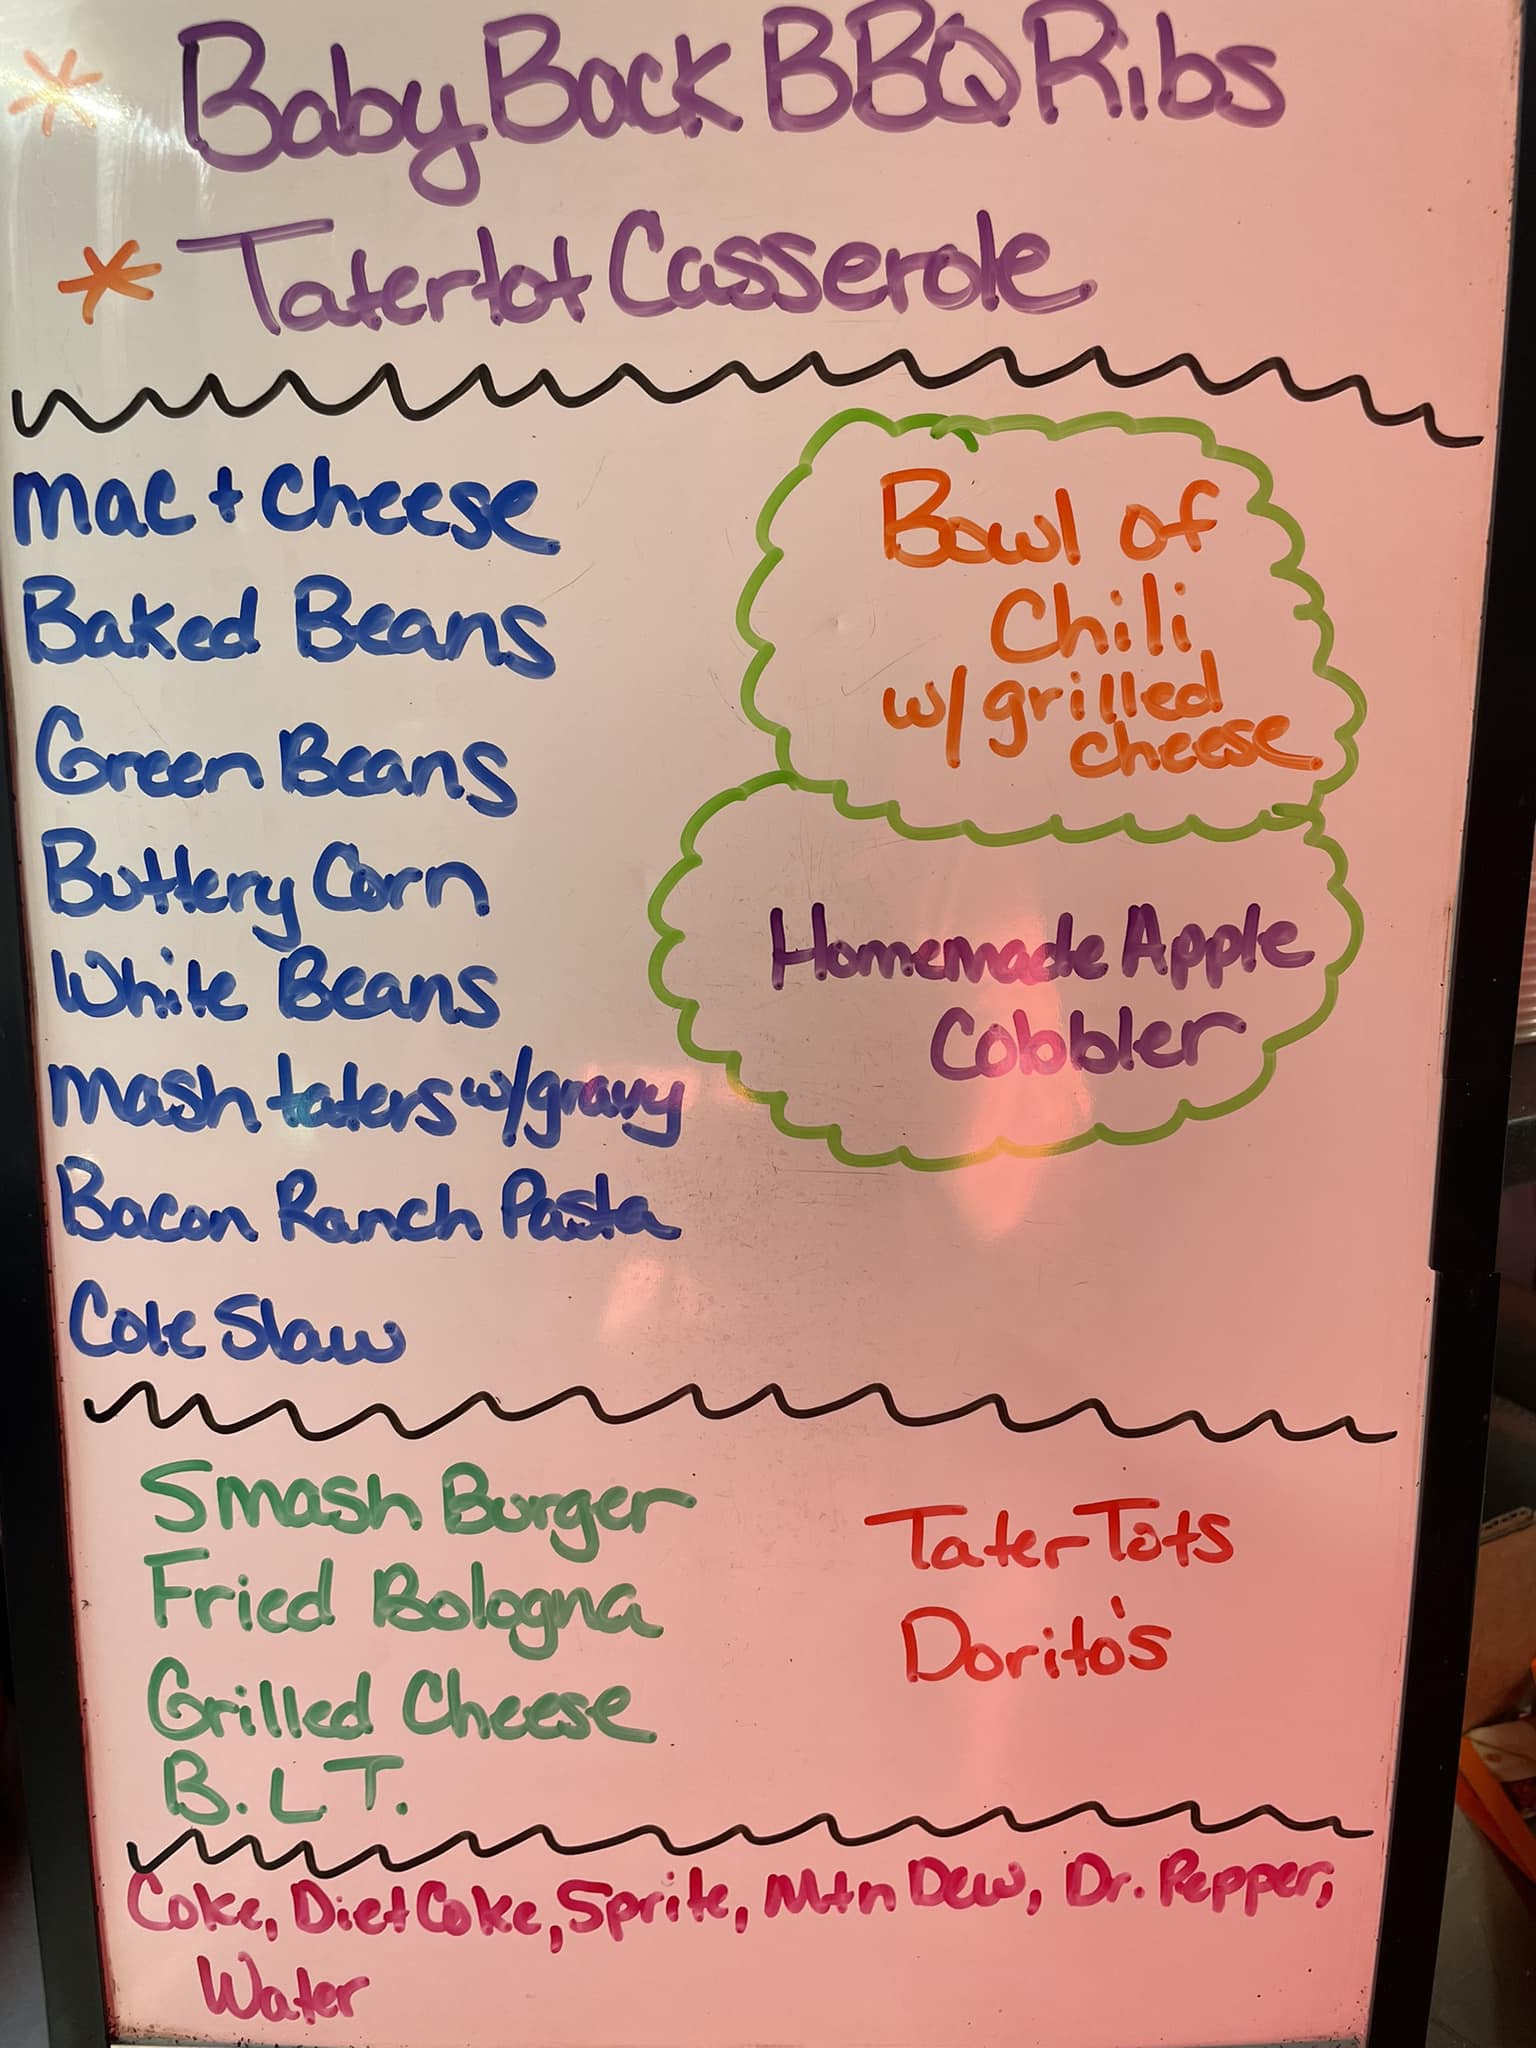 * Baby Back BBQ Ribs
* Tatertot Casserole
Mac + Cheese
Baked Beans
Green Beans
Buttery Corn
White Beans
Mash taters w/gravy
Bacon Ranch Pasta
Cole Slaw
Bowl of
Chili
w/ grilled
cheese
Homemade Apple
Cobbler
Smash Burger
Fried Bologna
Grilled Cheese
B.L.T.
Tater Tots
Dorito's
Coke, Diet Coke, Sprite, Mtn Dew, Dr. Pepper,
Water